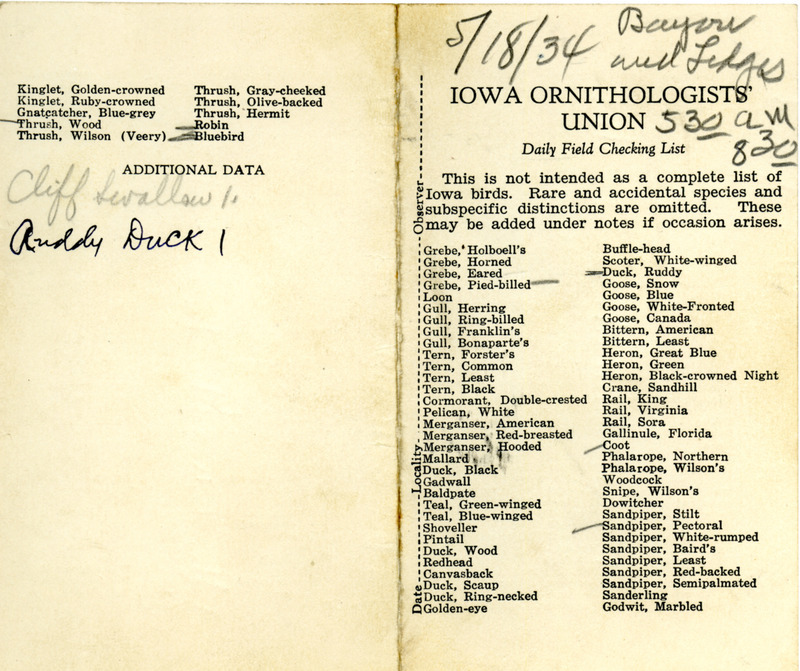 Kinglet, Golden-crowned
Kinglet, Ruby-crowned
Gnatcatcher, Blue-grey
Thrush, Wood
Thrush, Wilson (Veery)
Thrush, Gray-cheeked
Thrush, Olive-backed
Thrush, Hermit
Robin
Bluebird
ADDITIONAL DATA
Cliff Swallow 1.
Ruddy Duck 1
5/18/34
Bayou
and Ledges
IOWA ORNITHOLOGISTS'
UNION
530 a M
830
Daily Field Checking List
This is not intended as a complete list of
Iowa birds. Rare and accidental species and
subspecific distinctions are omitted. These
may be added under notes if occasion arises.
Date
Locality
Observer
Grebe, Holboell's
Grebe, Horned
Grebe, Eared
Grebe, Pied-billed
Loon
Gull, Herring
Gull, Ring-billed
Gull, Franklin's
Gull, Bonaparte's
Tern, Forster's
Tern, Common
Tern, Least
Tern, Black
Cormorant, Double-crested
Pelican, White
Merganser, American
Merganser, Red-breasted
Merganser, Hooded
Mallard
Duck, Black
Gadwall
Baldpate
Teal, Green-winged
Teal, Blue-winged
Shoveller
Pintail
Duck, Wood
Redhead
Canvasback
Duck, Scaup
Duck, Ring-necked
Golden-eye
Buffle-head
Scoter, White-winged
Duck, Ruddy
Goose, Snow
Goose, Blue
Goose, White-Fronted
Goose, Canada
Bittern, American
Bittern, Least
Heron, Great Blue
Heron, Green
Heron, Black-crowned Night
Crane, Sandhill
Rail, King
Rail, Virginia
Rail, Sora
Gallinule, Florida
Coot
Phalarope, Northern
Phalarope, Wilson's
Woodcock
Snipe, Wilson's
Dowitcher
Sandpiper, Stilt
Sandpiper, Pectoral
Sandpiper, White-rumped
Sandpiper, Baird's
Sandpiper, Least
Sandpiper, Red-backed
Sandpiper, Semipalmated
Sanderling
Godwit, Marbled